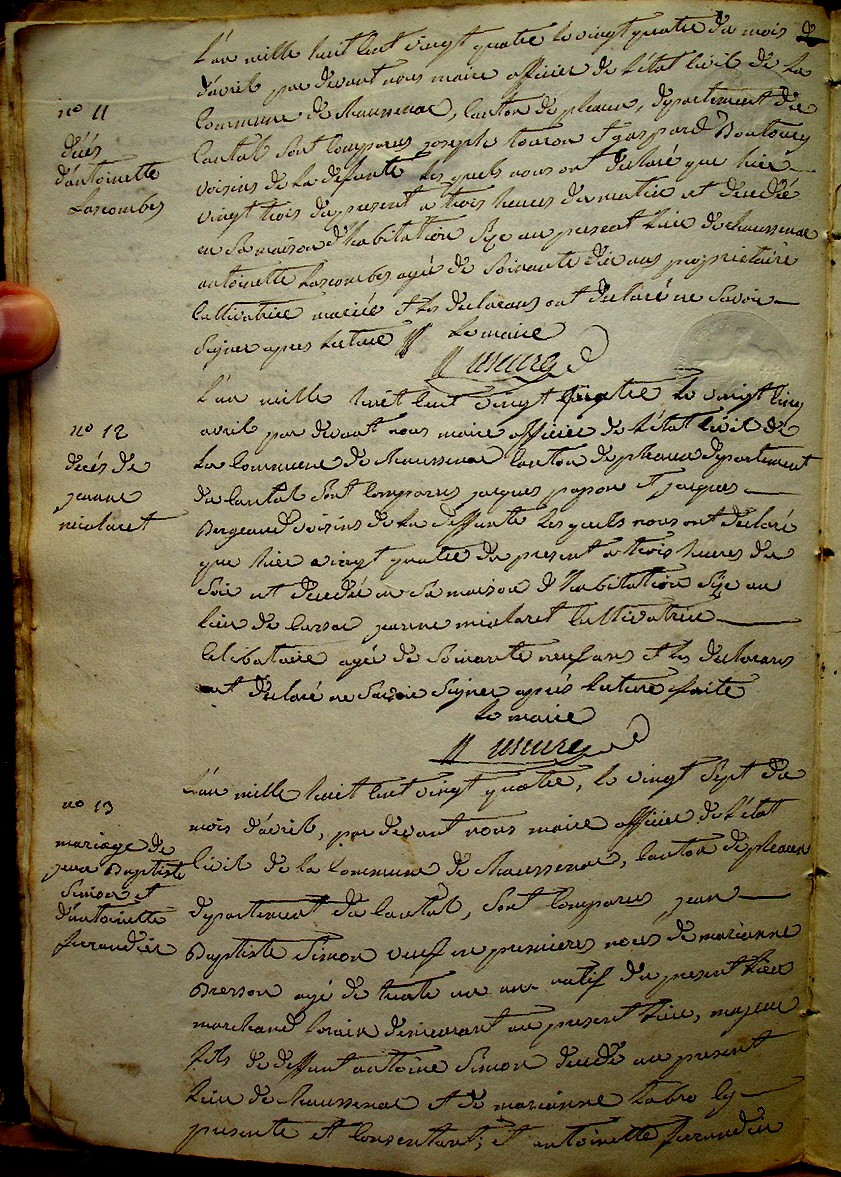 n° 11
décés
d'antoinette
Lascombes
L'an mille huit cent vingt quatre le vingt quatre du mois de
d'avril par devant nous maire officier de l'état civil de La
Commune de Chaussenac, Canton de pleaux, département du
Cantal sont comparus joseph et gaspard
voisins de La defunte Les quels nous ont declaré que hier
vingt trois du present a trois heures du matin est decedée
en sa maison d'habitation size au present lieu de chaussenac
antoinette Lascombes agée de soixante dix ans propriétaire
Cultivatrice mariée et les declarans ont declaré ne savoir
signer apres lecture Le maire
n° 12
décés de
jeanne
miclaret
L'an mille huit cent vingt quatre le vingt cinq
avril par devant nous maire officier de L'état civil de
La Commune de Chaussenac Canton de pleaux departement
du Cantal sont Comparus jacques papon et jacques
Bergeaud voisins de La deffunte Les quels nous ont declaré
que hier vingt quatre du present a trois heures du
soir est decedée en sa maison d'habitation size au
lieu de jeanne miclaret Cultivatrice
Celibataire agée de soixante neuf ans et les declarans
ont declaré ne savoir signer après lecture faite
Le maire
n° 13
mariage de
jean Baptiste
Simon et
d'antoinette
ferandier
L'an mille huit cent vingt quatre, le vingt sept du
mois d'avril, par devant nous maire officier de L'état
Civil de la Commune de Chaussenac, Canton de pleaux
departement du Cantal, sont Comparus jean
Baptiste Simon veuf en premieres noces de marianne
agé de trente un ans natif du present lieu
marchand forain demeurant au present lieu, majeur
fils de deffunt antoine Simon decedé au present
lieu de Chaussenac et de marianne Labro icy
presente et Consentant; et antoinette ferandier